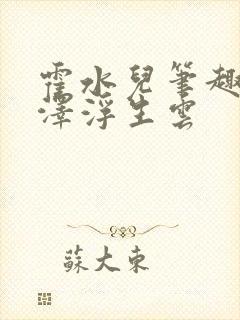 霍水兒筆趣
澤浮生雲
蘇大東